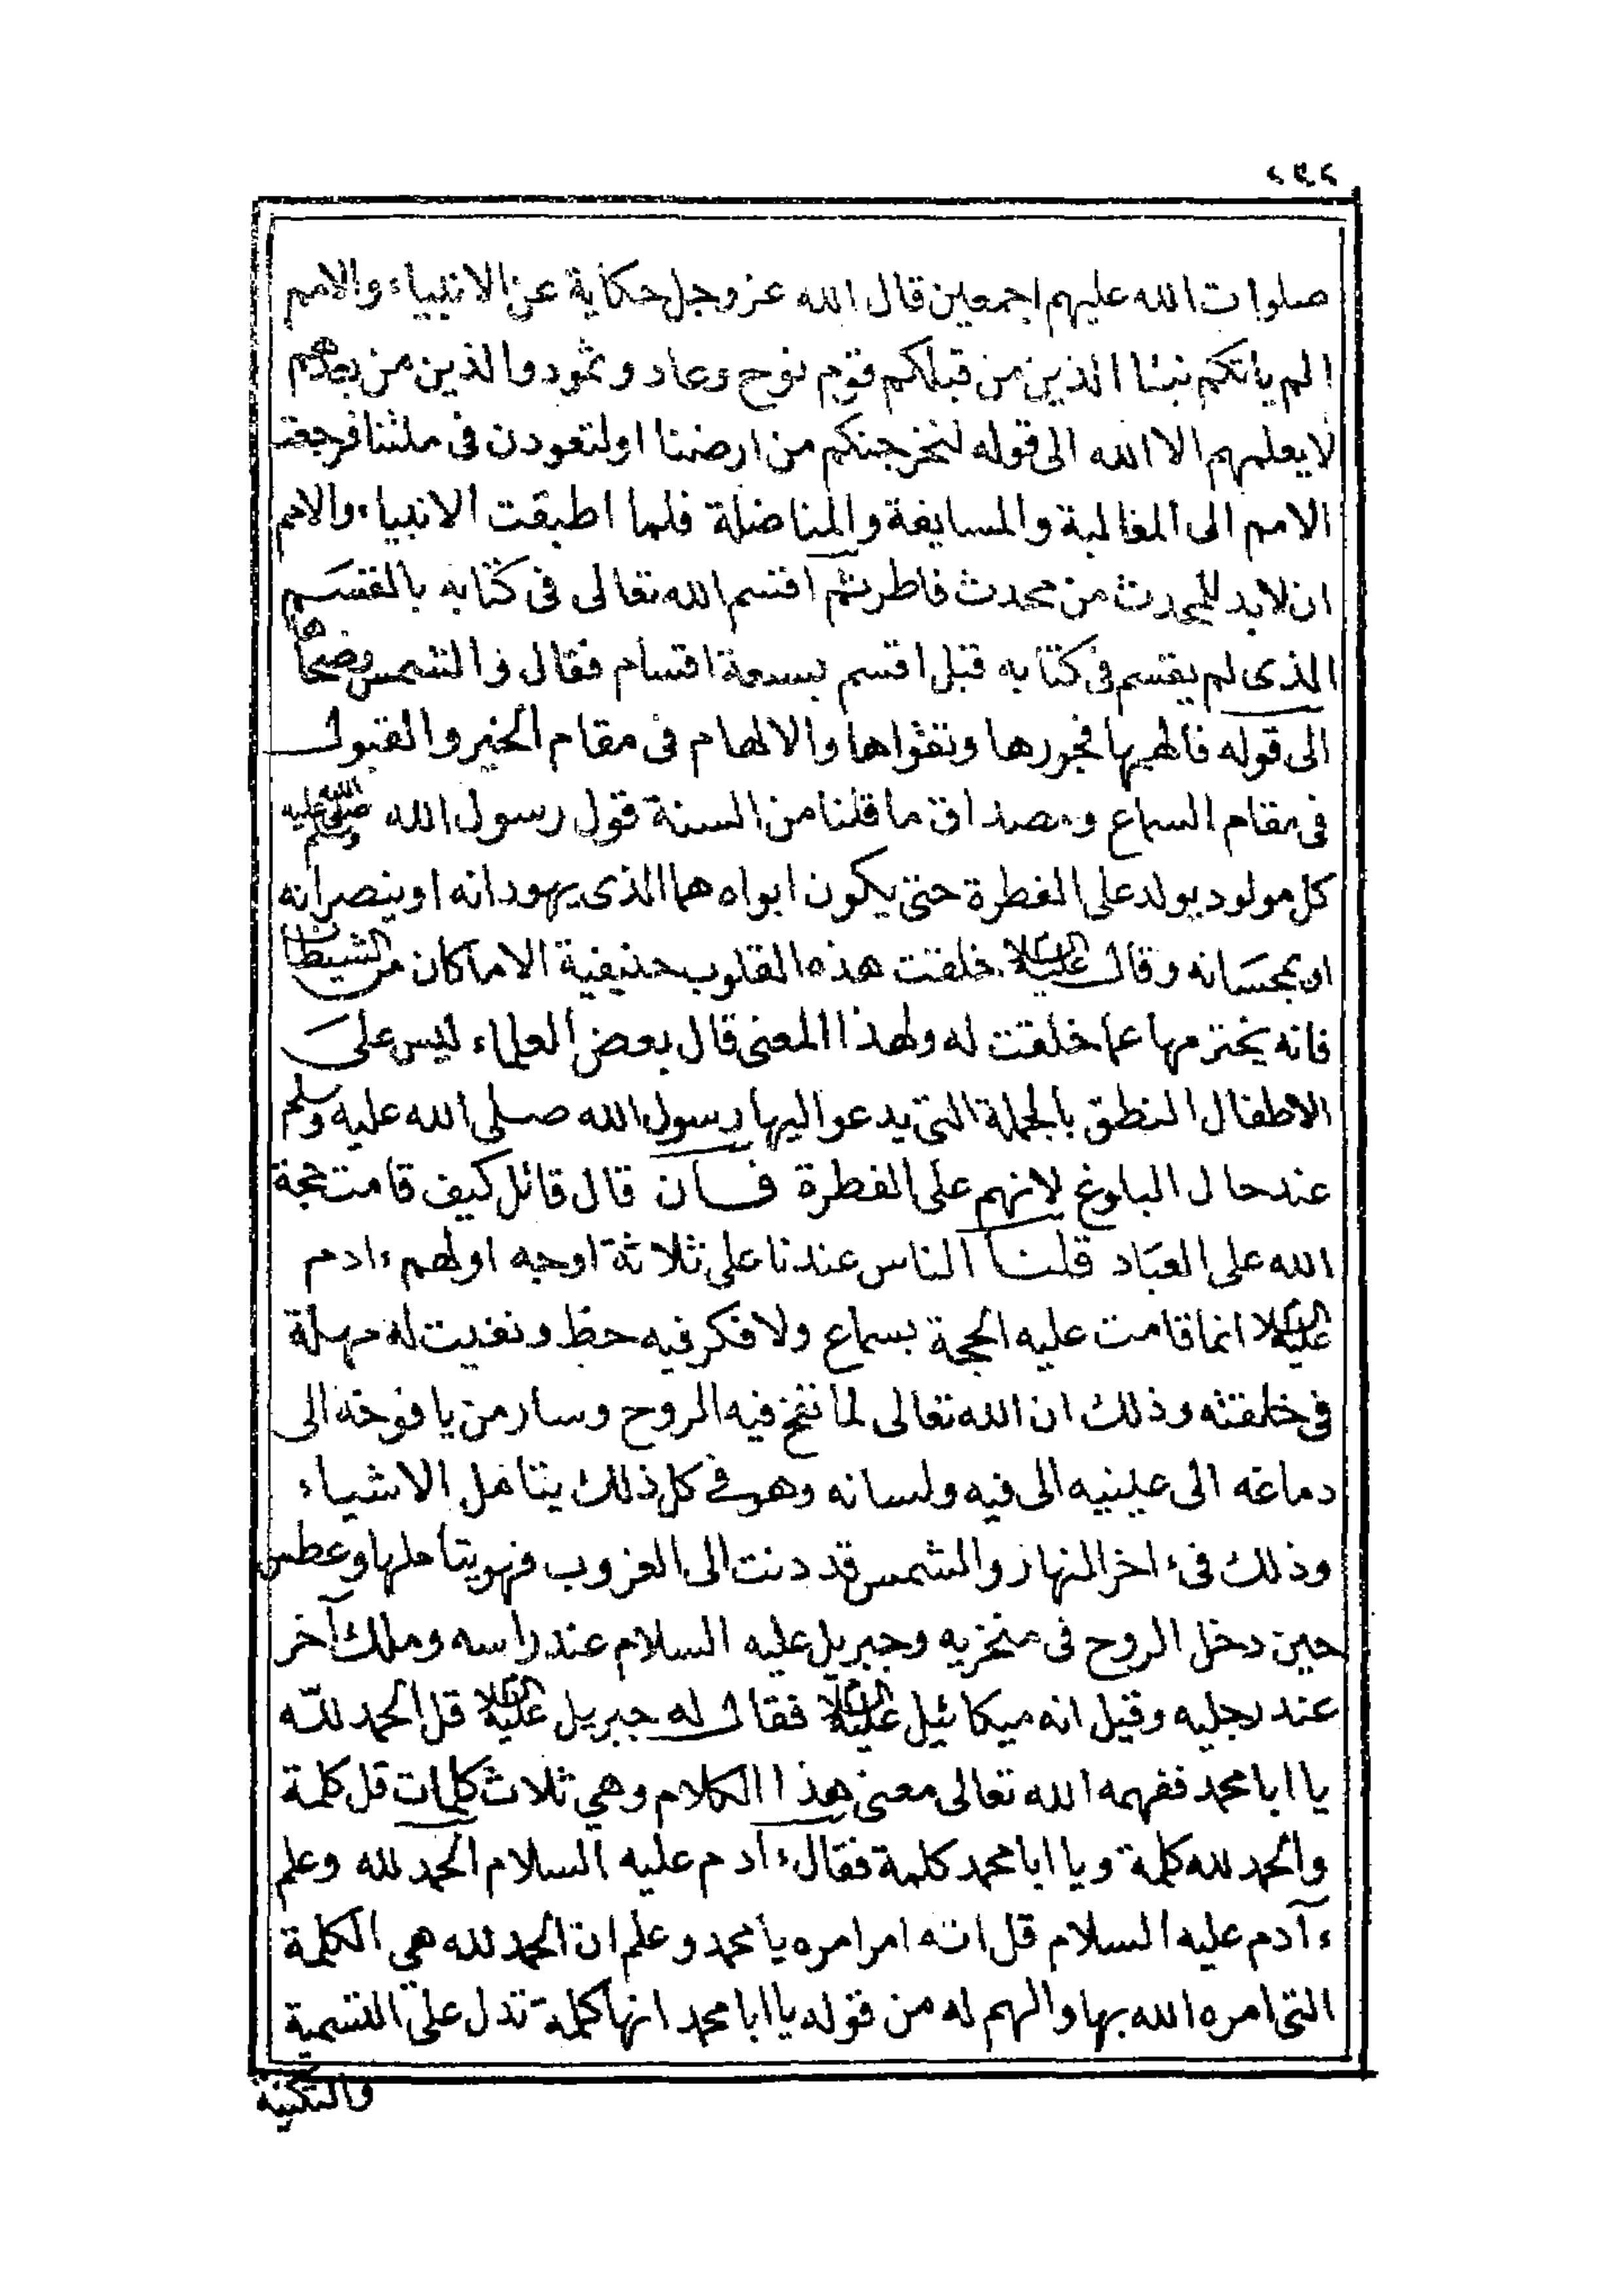 صلوات الله عليهم اجمعين قال الله عز وجل حكاية عن الانبياء والامم
الم ياتكم نبئا الذين من قبلكم قوم نوح وعاد وثمود والذين من بعدهم
لا يعلمهم الا الله الى قوله لنخرجنكم من ارضنا او لتعودن فى ملتنا فرجعت
الامم الى المغالبة والمسايفة والمناضلة فلما اطبقت الانبياء والامم
ان لا بد للمحدث من محدث فاطر ثم اقسم الله تعالى فى كتابه بالقسم
الذى لم يقسم فى كتابه قبل اقسم بسبعة اقسام فقال والشمس وضحاها
الى قوله فالهمها فجورها وتقواها والالهام فى مقام الخير والقبول
فى مقام السماع ومصداق ما قلنا من السنة قول رسول الله صلى الله عليه وسلم
كل مولود يولد على الفطرة حتى يكون ابواه هما الذى يهودانه او ينصرانه
او يمجسانه وقال عليه السلام خلقت هذه القلوب حنيفية الا ما كان من الشيطان
فانه يخترمها عما خلقت له ولهذا المعنى قال بعض العلماء ليس على
الاطفال النطق بالجملة التى يدعو اليها رسول الله صلى الله عليه وسلم
عند حال البلوغ لانهم على الفطرة فان قال قائل كيف قامت حجة
الله على العباد قلنا الناس عندنا على ثلاثة اوجه اولهم ءادم
عليه السلام انما قامت عليه الحجة بسماع ولا فكر فيه حظ وبقيت له مهلة
فى خلقته وذلك ان الله تعالى لما نفخ فيه الروح وسار من يافوخه الى
دماغه الى عينيه الى فيه ولسانه وهو فى كل ذلك يتامل الاشياء
وذلك فى ءاخر النهار والشمس قد دنت الى الغروب فهو يتاملها وعطس
حين دخل الروح فى منخزيه وجبريل عليه السلام عند راسه وملك آخر
عند رجليه وقيل انه ميكائيل عليه السلام فقال له جبريل عليه السلام قل الحمد لله
يا ابا محمد ففهمه الله تعالى معنى هذا الكلام وهي ثلاث كلمات قل كلمة
والحمد لله كلمة ويا ابا محمد كلمة فقال ءآدم عليه السلام الحمد لله وعلم
ءآدم عليه السلام قل انه امر امره يا محمد وعلم ان الحمد لله هي الكلمة
التى امره الله بها والهم له من قوله يا ابا محمد انها كلمة تدل على التسمية
والتكنية